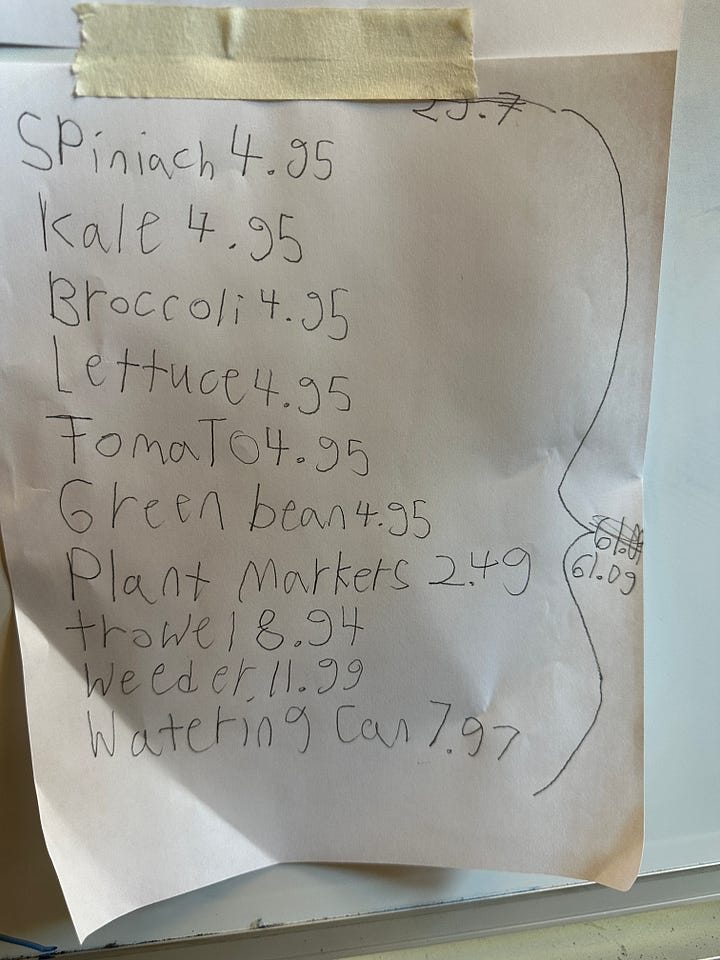 SPiniach 4.95
Kale 4.95
Broccoli 4.95
Lettuce 4.95
TomaTO 4.95
Green bean 4.95
Plant Markers 2.49
trowel 8.94
Weeder 11.99
Watering Can 7.97
61.09